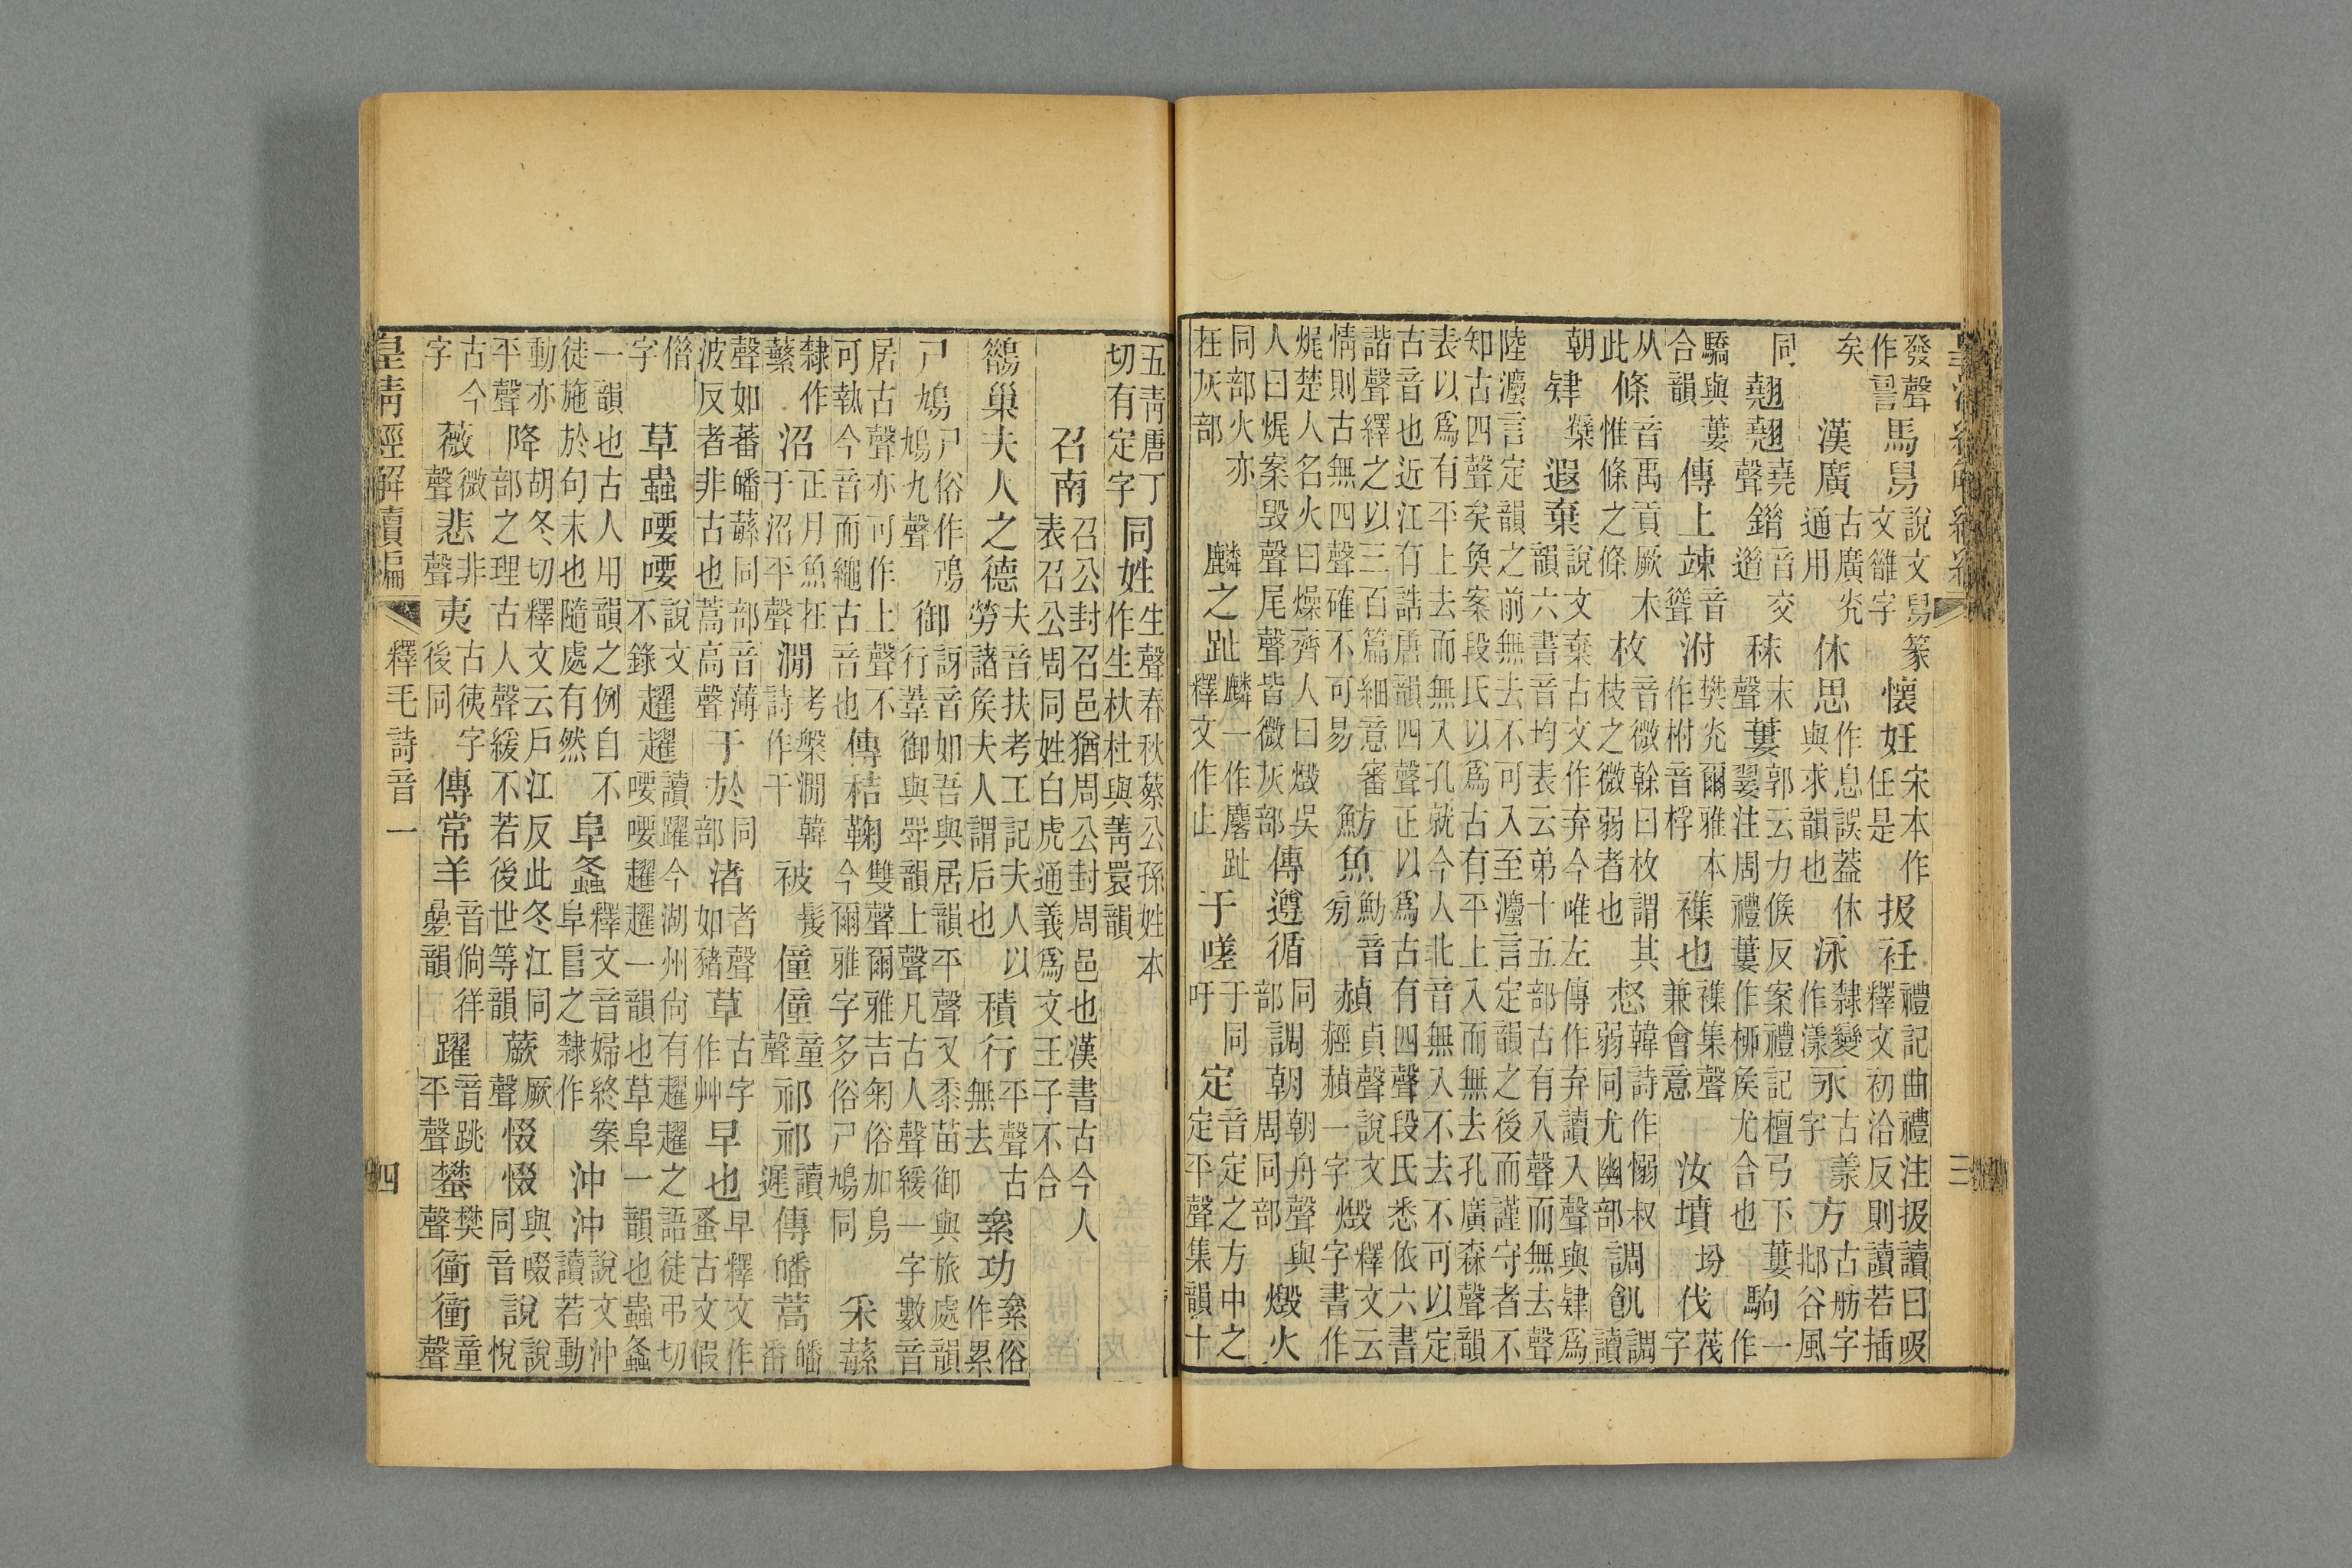 發聲作𧦝馬舄說文舄篆文雒字懷妊宋本作任是扱衽禮記曲禮注扱讀曰吸釋文初洽反則讀若插
矣漢廣古廣光通用休思作息誤葢休與求韻也泳隸變作漾永古羕字方古舫字邶谷風
同翹翹堯聲錯音交䢒秣末聲蔞郭云力俟反案禮記檀弓下蔞翣注周禮蔞作桺矦尤合也駒一作
驕與蔞合韻傳上竦音聳泭樊光爾雅本作柎音桴襍也襍集聲兼會意汝墳坋伐茷字
从此條音禹貢厥木惟條之條枚音微榦曰枚謂其枝之微弱者也惄韓詩作愵叔弱同尤幽部調飢調讀
朝肄櫱遐棄說文棄古文作弃今唯左傳作弃讀入聲與肄爲韻六書音均表云弟十五部古有入聲而無去聲
陸灋言定韻之前無去不可入至灋言定韻之後而謹守者不知古四聲矣奐案段氏以爲古有平上入而無去孔廣森聲韻
表以爲有平上去而無入孔就今人北音無入不去不可以定古音也近江有誥唐韻四聲正以爲古有四聲段氏悉依六書
諧聲繹之以三百篇細意審情則古無四聲確不可易魴魚魴音旁赬貞聲說文䞓赬一字燬釋文云字書作
㷄楚人名火曰燥齊人曰燬吳人曰㷄案毀聲尾聲皆微灰部傳遵循同部調朝朝舟聲與周同部燬火
同部火亦在灰部麟之趾麟一作麐趾釋文作止于嗟于同吁定音定之方中之定平聲集韻十
三
五靑唐丁切有定字同姓生聲春秋蔡公孫姓本作生杕杜與菁睘韻
召南召公封召邑猶周公封周邑也漢書古今人表召公周同姓白虎通義爲文王子不合
鵲巢夫人之德夫音扶考工記夫人以勞諸矦夫人謂后也積行平聲古無去絫功絫俗作累
尸鳩尸俗作鳲鳩九聲御訝音如吾與居韻平聲又黍苗御與旅處韻行葦御與斝韻上聲凡古人聲緩一字數音
居古聲亦可作上聲不可執今音而繩古音也傳秸鞠雙聲爾雅吉匊俗加鳥今爾雅字多俗尸鳩同采蘇
隸作蘩沼正月魚在于沼平聲澗考槃澗韓詩作干被髲僮僮童聲祁祁讀遲傳皤蒿皤番
聲如蕃皤蘇同部音薄波反者非古也蒿高聲于於同部渚者聲如豬草古字作艸早也早釋文作蚤古文假
偕字草蟲喓喓說文不錄趯趯讀躍今湖州尙有趯趯之語徒弔切喓喓趯趯一韻也草阜一韻也蟲螽
一韻也古人用韻之例自不徒施於句末也隨處有然阜螽釋文音婦終案阜𨸏之隸作沖沖說文沖讀若動
動亦平聲降胡冬切釋文云戶江反此冬江同部之理古人聲緩不若後世等韻蕨厥聲惙惙與啜同音說說悅
古今字薇微聲悲非聲夷古侇字後同傳常羊音倘徉曡韻躍音跳平聲蠜樊聲衝衝童聲
皇淸經解續編 釋毛詩音一 四